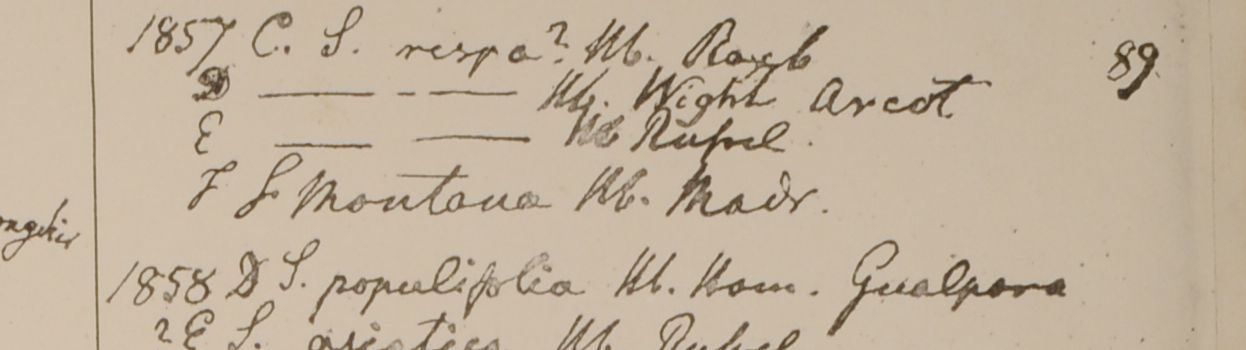 1857 C. S. respa? Hb. Roxb 89
D — - — Hb. Wight Arcot
E — — Hb Russel.
F S Montana Hb. Madr.
1858 D S. populifolia Hb. Ham. Gualpara
? E S. asiatica Hb. Russel